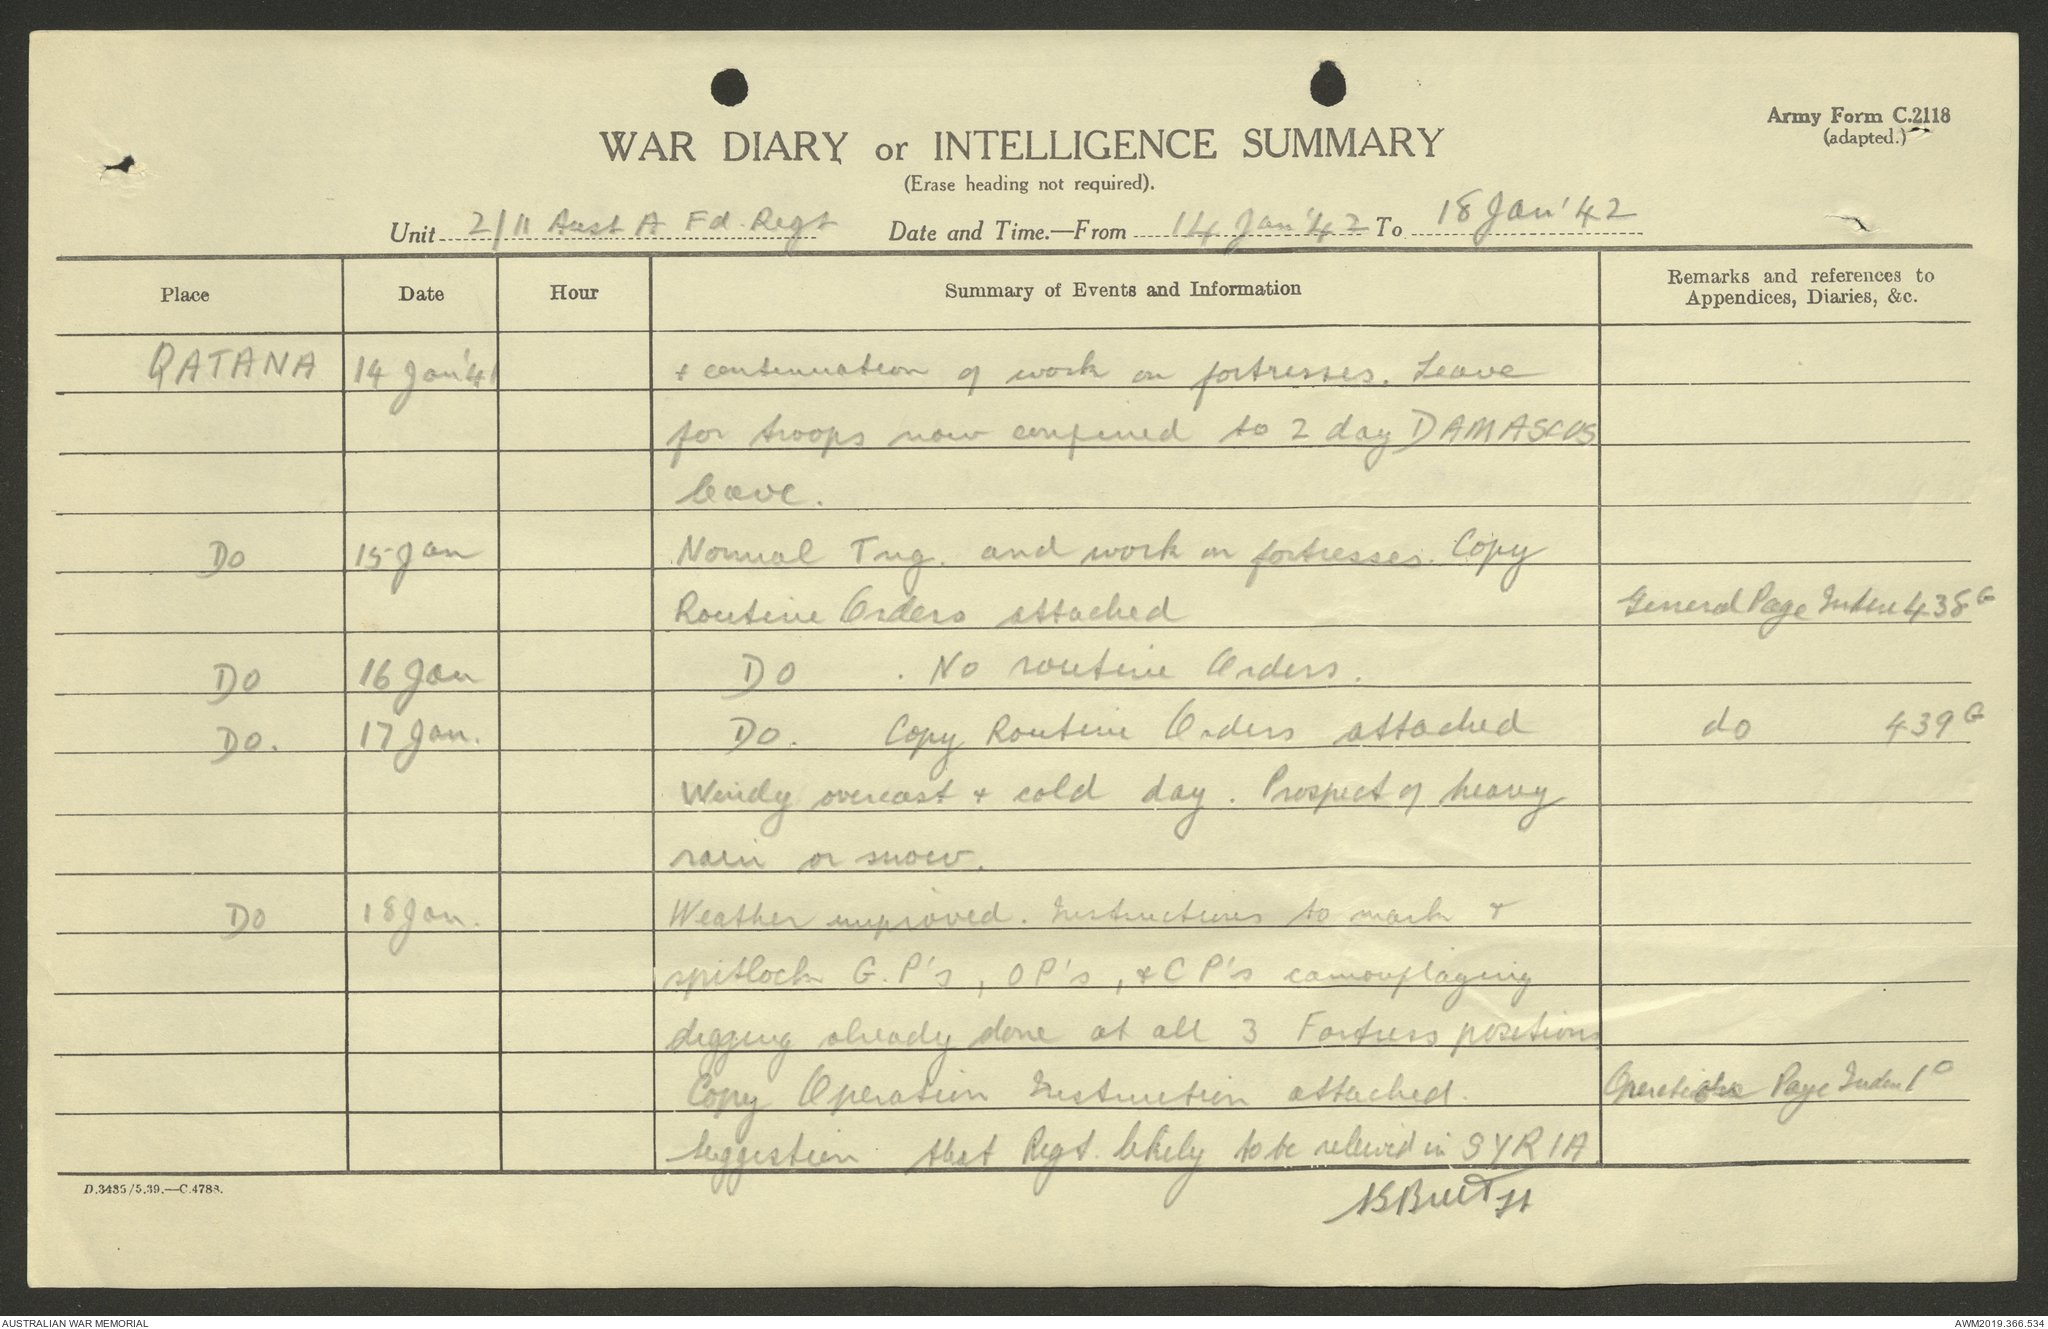 Army Form C.2118
(adapted.)
WAR DIARY or INTELLIGENCE SUMMARY
(Erase heading not required).
Unit 2/11 Aust A Fd. Regt Date and Time.—From 14 Jan '42 To 18 Jan '42
Place Date Hour Summary of Events and Information Remarks and references to Appendices, Diaries, &c.
QATANA 14 Jan '41 + continuation of work on fortresses. Leave
for troops now confined to 2 day DAMASCUS
leave.
Do 15 Jan Normal Tng. and work on fortresses. Copy
Routine Orders attached General Page Index 438G
Do 16 Jan Do . No routine Orders.
Do. 17 Jan. Do. Copy Routine Orders attached do 439G
Windy overcast + cold day. Prospect of heavy
rain or snow.
Do 18 Jan. Weather improved. Instructions to mark +
spitlock G.P's, OP's, + CP's camouflaging
digging already done at all 3 Fortress positions
Copy Operation Instruction attached. Operations Page Index 1O
Suggestion that Regt. likely to be relieved in SYRIA
D.3435/5.39.—C.4788.
AUSTRALIAN WAR MEMORIAL AWM2019.366.534